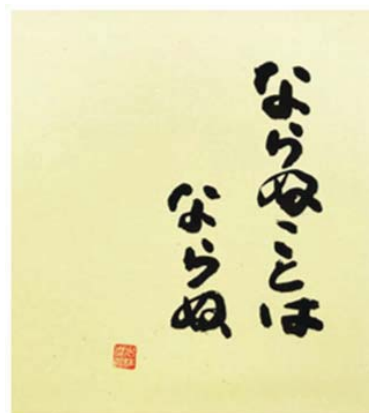 ならぬことは
ならぬ